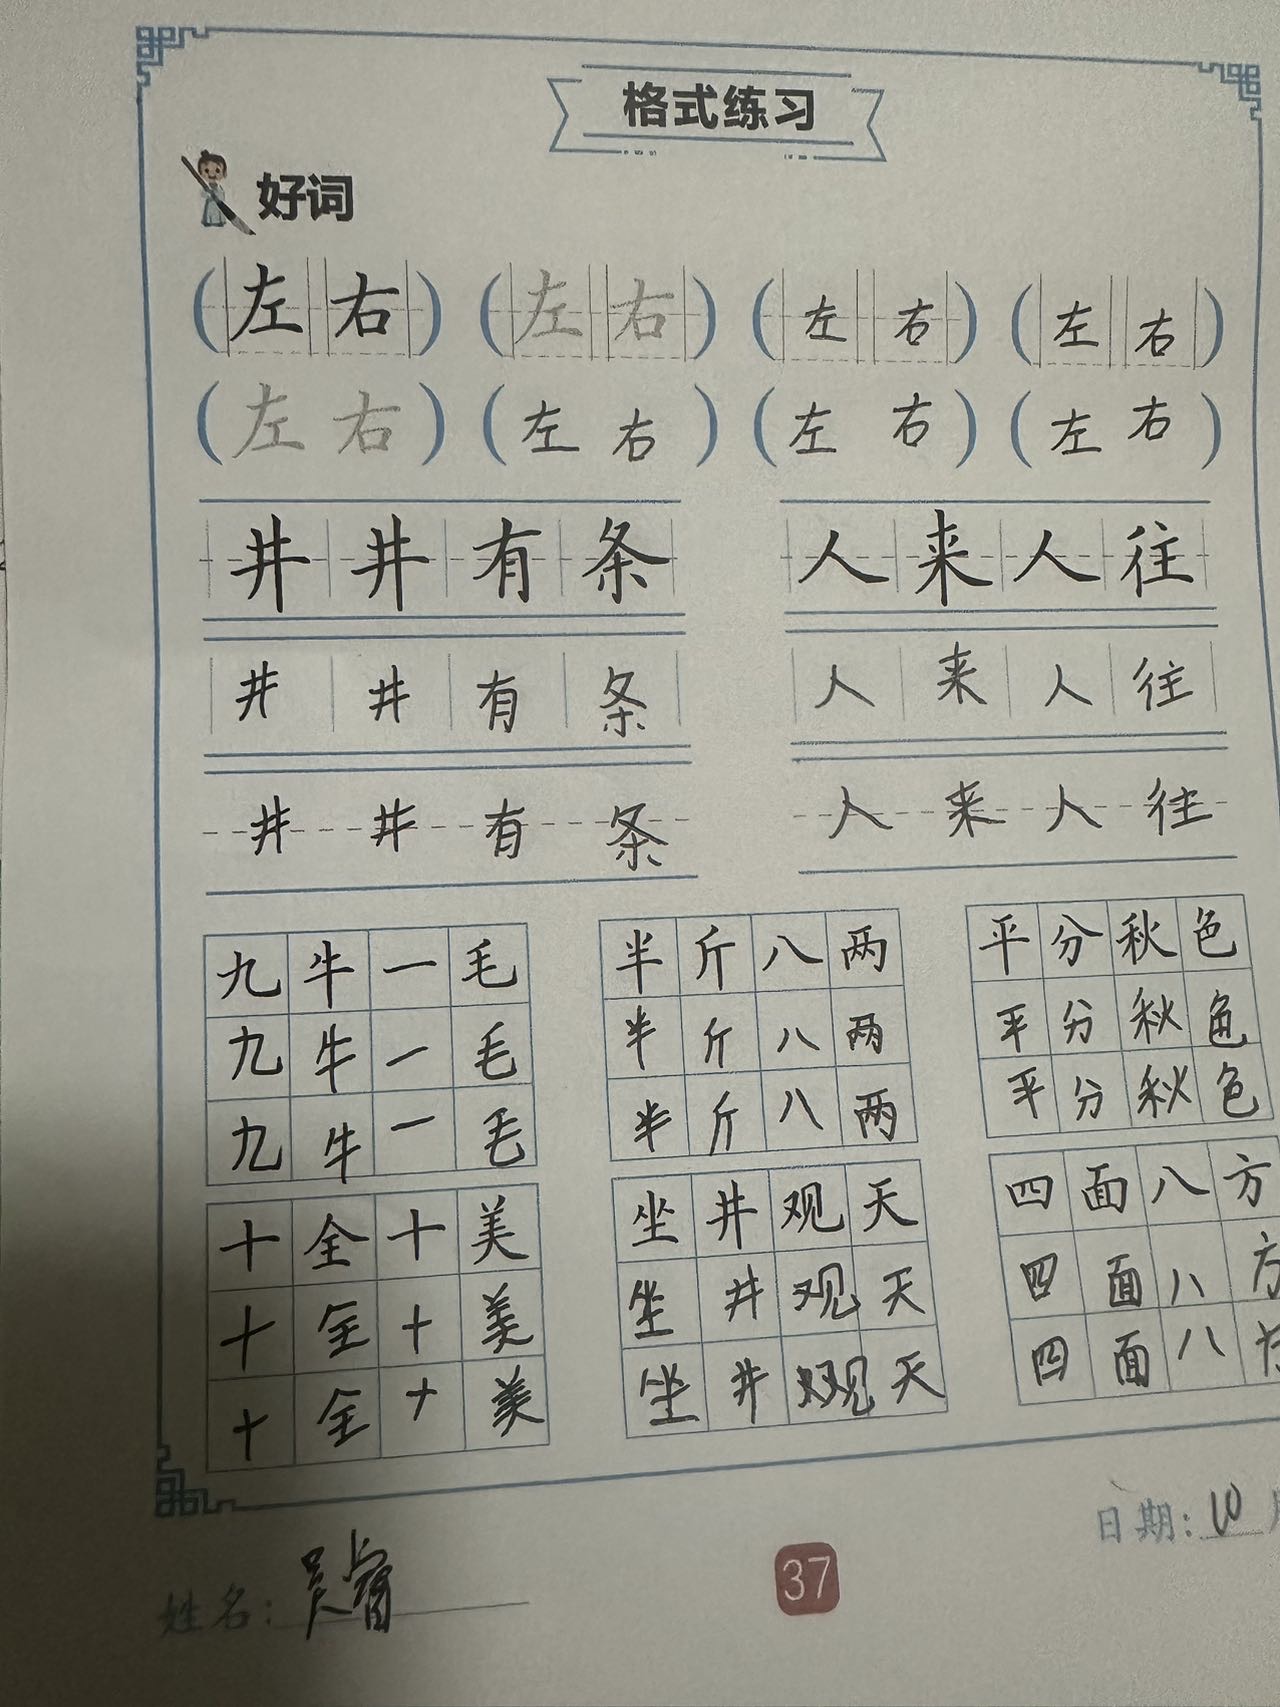 格式练习
好词
(左右) (左右) (左右) (左右)
(左右) (左右) (左右) (左右)
井井有条 人来人往
井井有条 人来人往
井井有条 人来人往
九牛一毛 半斤八两 平分秋色
九牛一毛 半斤八两 平分秋色
九牛一毛 半斤八两 平分秋色
十全十美 坐井观天 四面八方
十全十美 坐井观天 四面八方
十全十美 坐井观天 四面八方
日期: 10 月
姓名: 吴睿
37